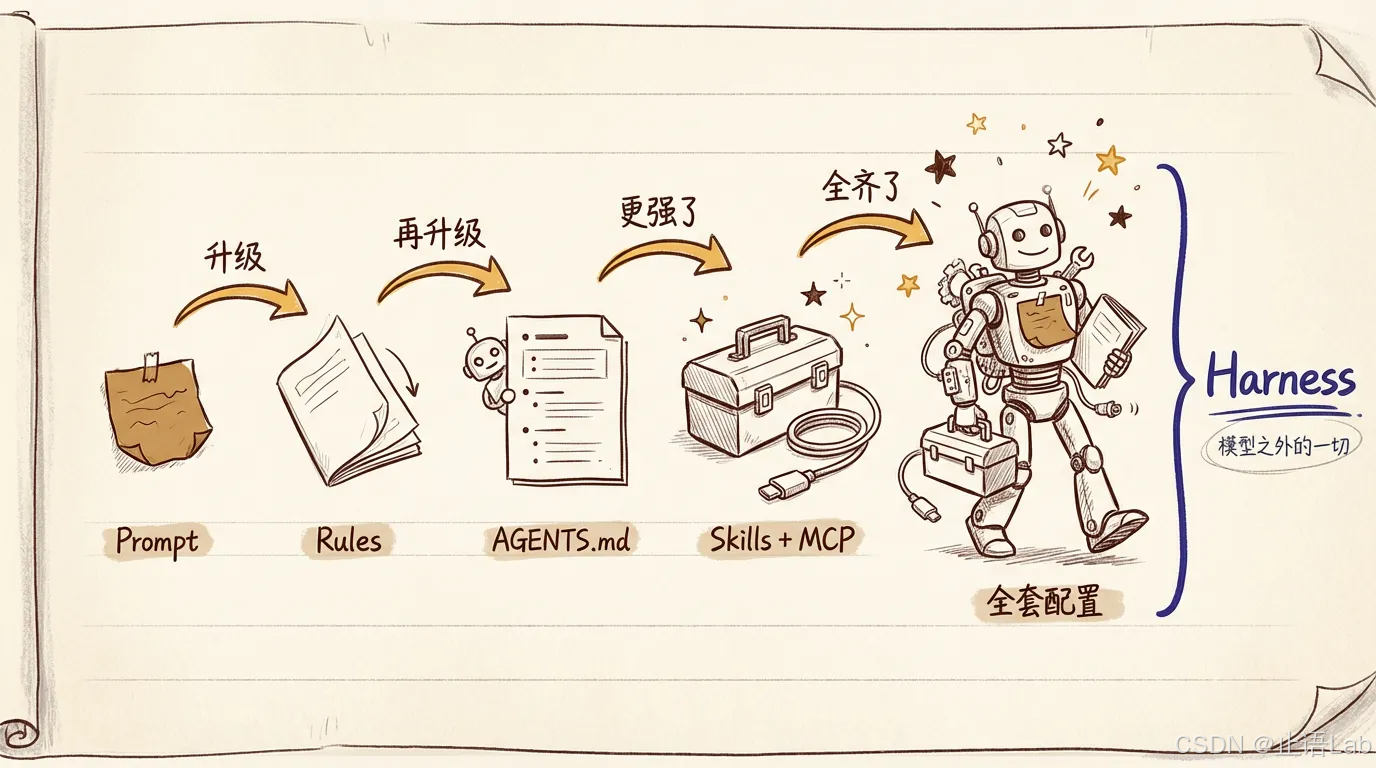 升级
再升级
更强了
全齐了
Prompt
Rules
AGENTS.md
Skills + MCP
全套配置
Harness
模型之外的一切
CSDN @止语Lab